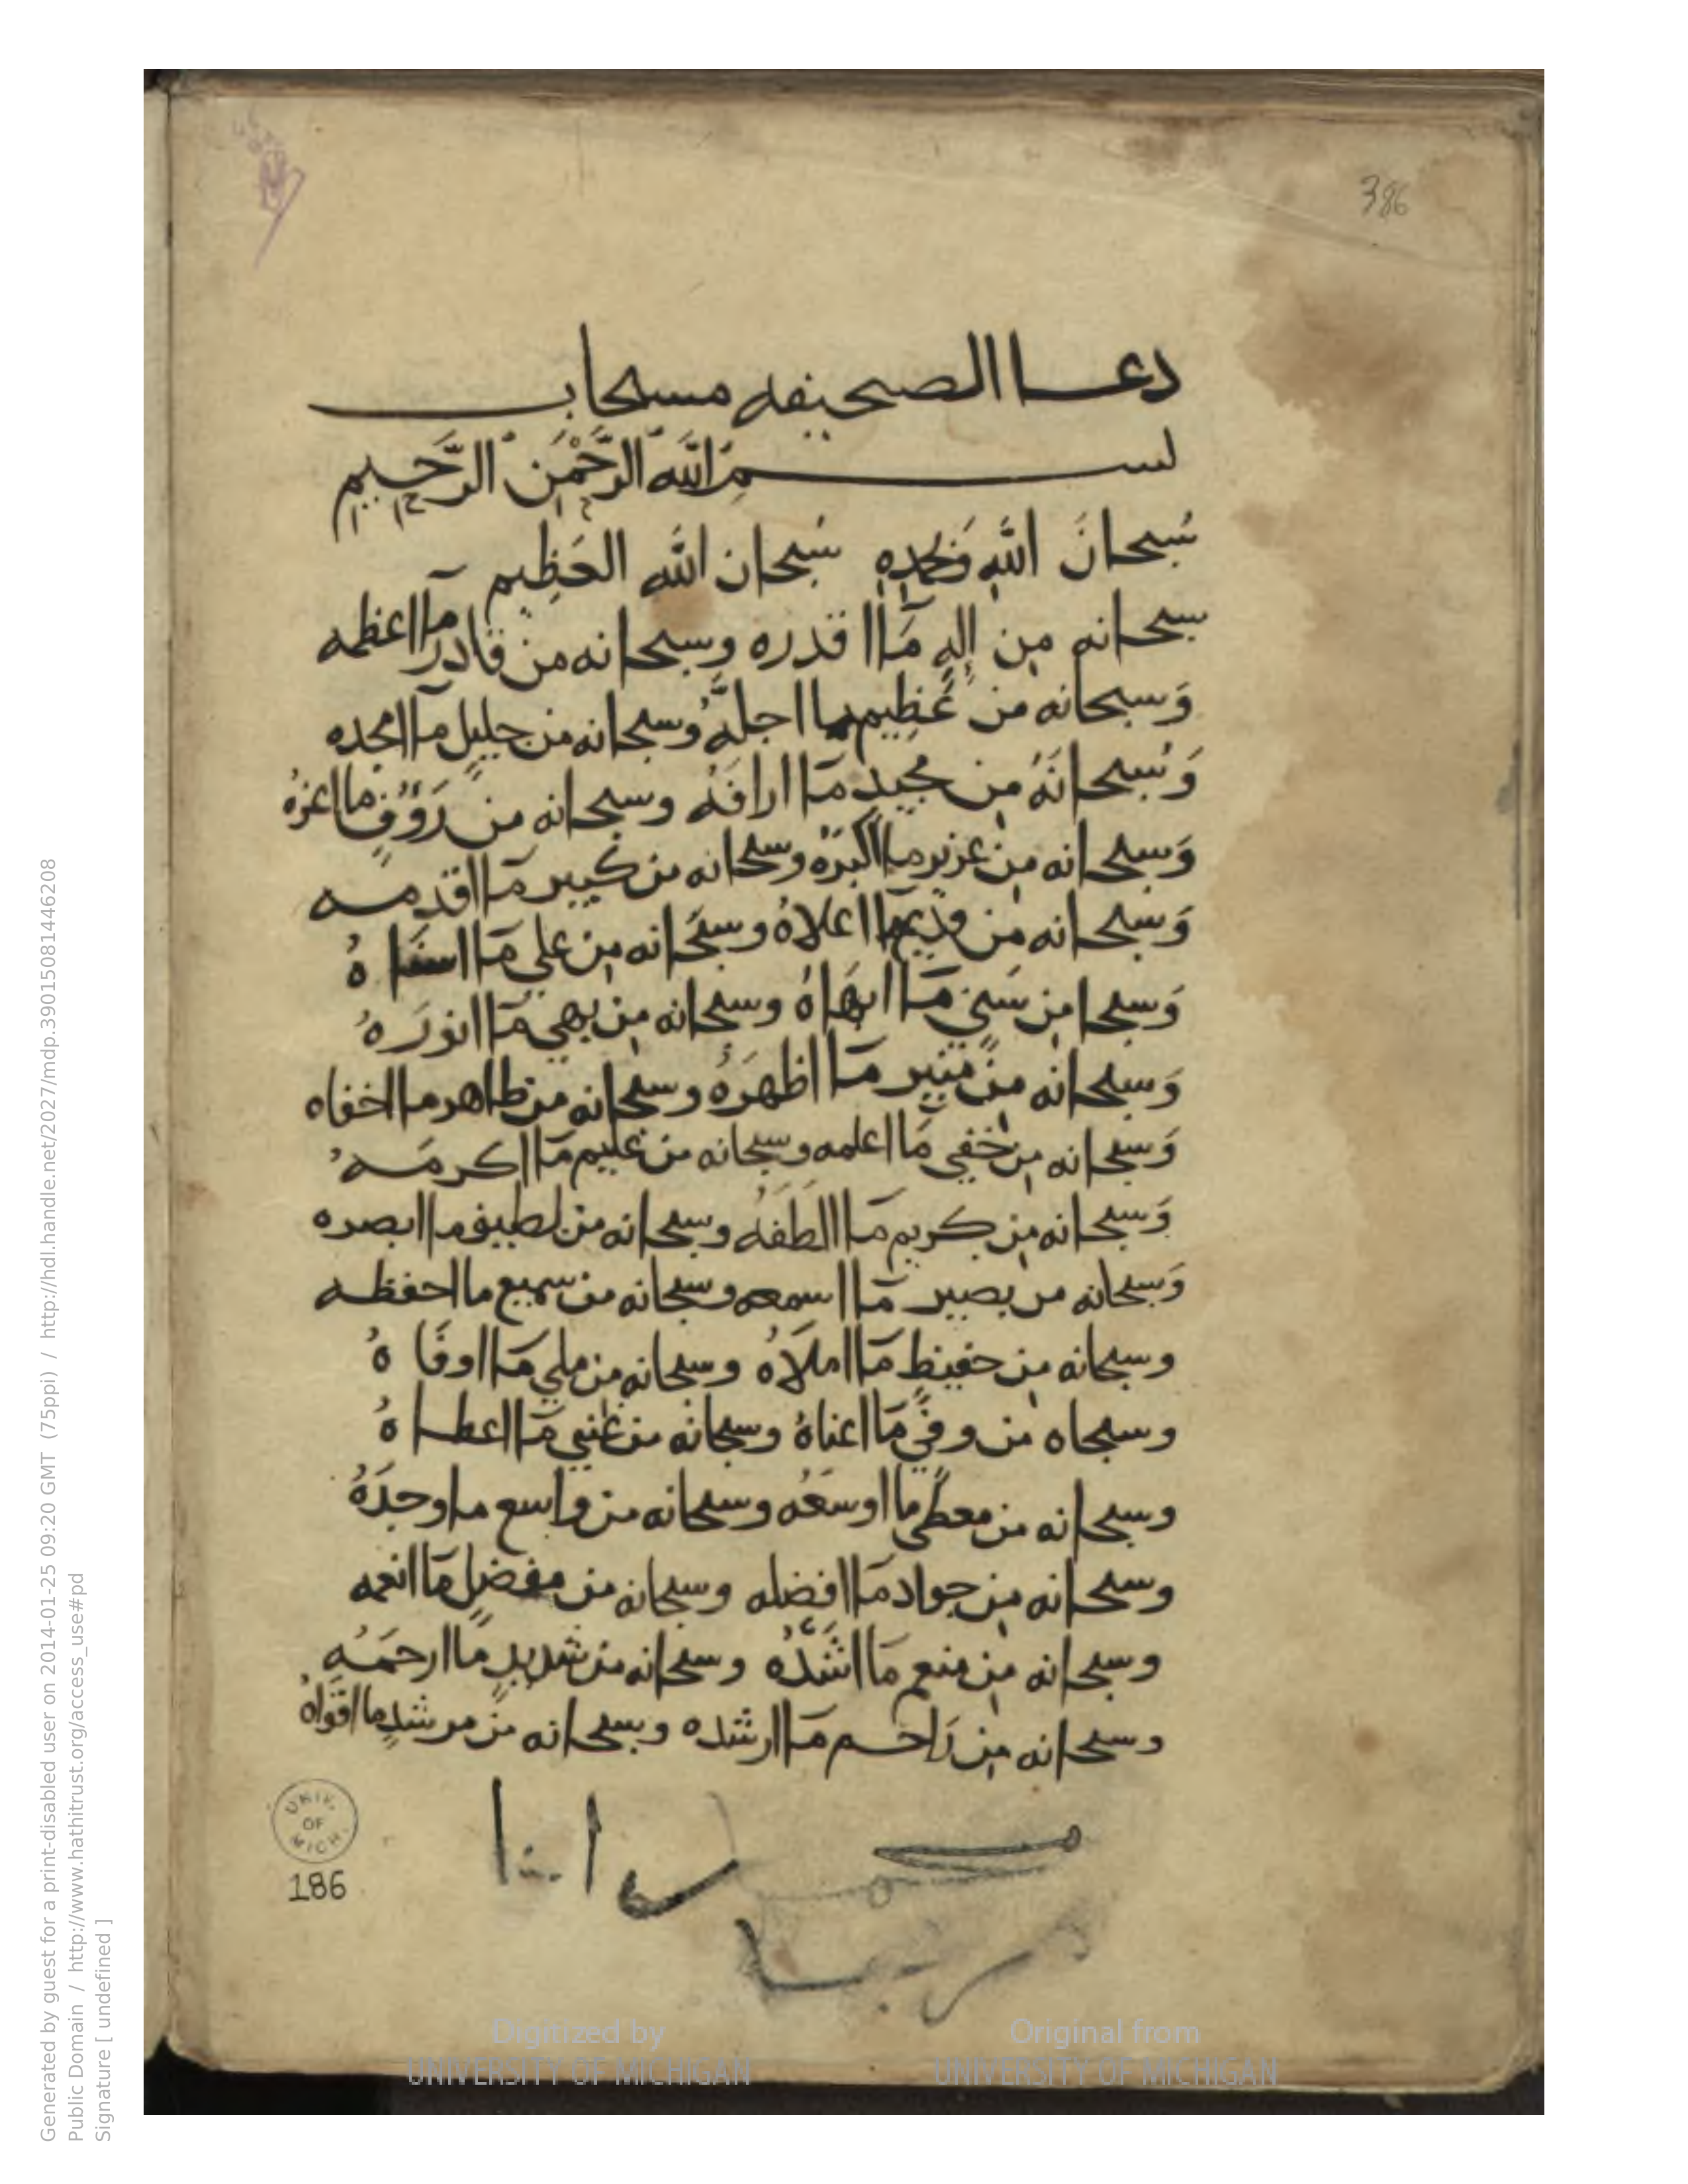 386
دعا الصحيفه مستجاب
بسم اللَّه الرَّحْمَن الرَّحِيم
سُبحانَ اللَّهِ وَبحمدِهِ سُبحان اللَّه العَظِيم
سبحانه مِن إلهٍ مَآ اقدره وسبحانه من قادرٍ مآ اعظمه
وَسبحانه من عَظِيمٍ ما اجلَّهُ وسبحانه من جليلٍ مآ امجده
وَسُبحانَهُ مِن مجيدٍ مَا ارافَهُ وسبحانه مِن رَوُوفٍ ما اعزهُ
وَسبحانه مِن عزيز ما اكبرَهُ وسبحانه من كبير مَا اقدمه
وَسبحانه من قديمٍ مَا اعلاهُ وسبحَانه مِن علي مَا اسنَاهُ
وَسبحا مِن سَنيٍ مَا ابهَاهُ وسبحانه مِن بهي مَا انورَهُ
وَسبحانه مِن منير مَا اظهرَهُ وسبحانه من ظاهر ما اخفاه
وَسبحانه مِن خفي مَا اعلمه وسبحانه من عليم مَا اكرمَهُ
وَسبحانه مِن كريم مَا الطَفَهُ وسبحانه من لطيف ما ابصره
وَسبحانه من بصير مَا اسمعه وسبحانه من سميع ما احفظه
وسبحانه مِن حفيظ مَا املاَهُ وسبحانه من ملي مَا اوفَاهُ
وسبحاه من وفيٍ مَا اغناهُ وسبحانه من غني مَا اعطاهُ
وسبحانه من معطيٍ ما اوسَعَه وسبحانه من واسع ما اوجدَهُ
وسبحانه مِن جواد مَا افضله وسبحانه من مفضلٍ مَا انعمه
وسبحانه مِن منعم مَا اشَدَّهُ وسبحانه من شديدٍ ما ارحمَه
وسبحانه مِن رَاحم مَا ارشده وسبحانه من مرشدٍ ما اقواهُ
UNIV. OF MICH.
186
Digitized by Original from
UNIVERSITY OF MICHIGAN UNIVERSITY OF MICHIGAN
Generated by guest for a print-disabled user on 2014-01-25 09:20 GMT (75ppi) / http://hdl.handle.net/2027/mdp.39015081446208
Public Domain / http://www.hathitrust.org/access_use#pd
Signature [ undefined ]